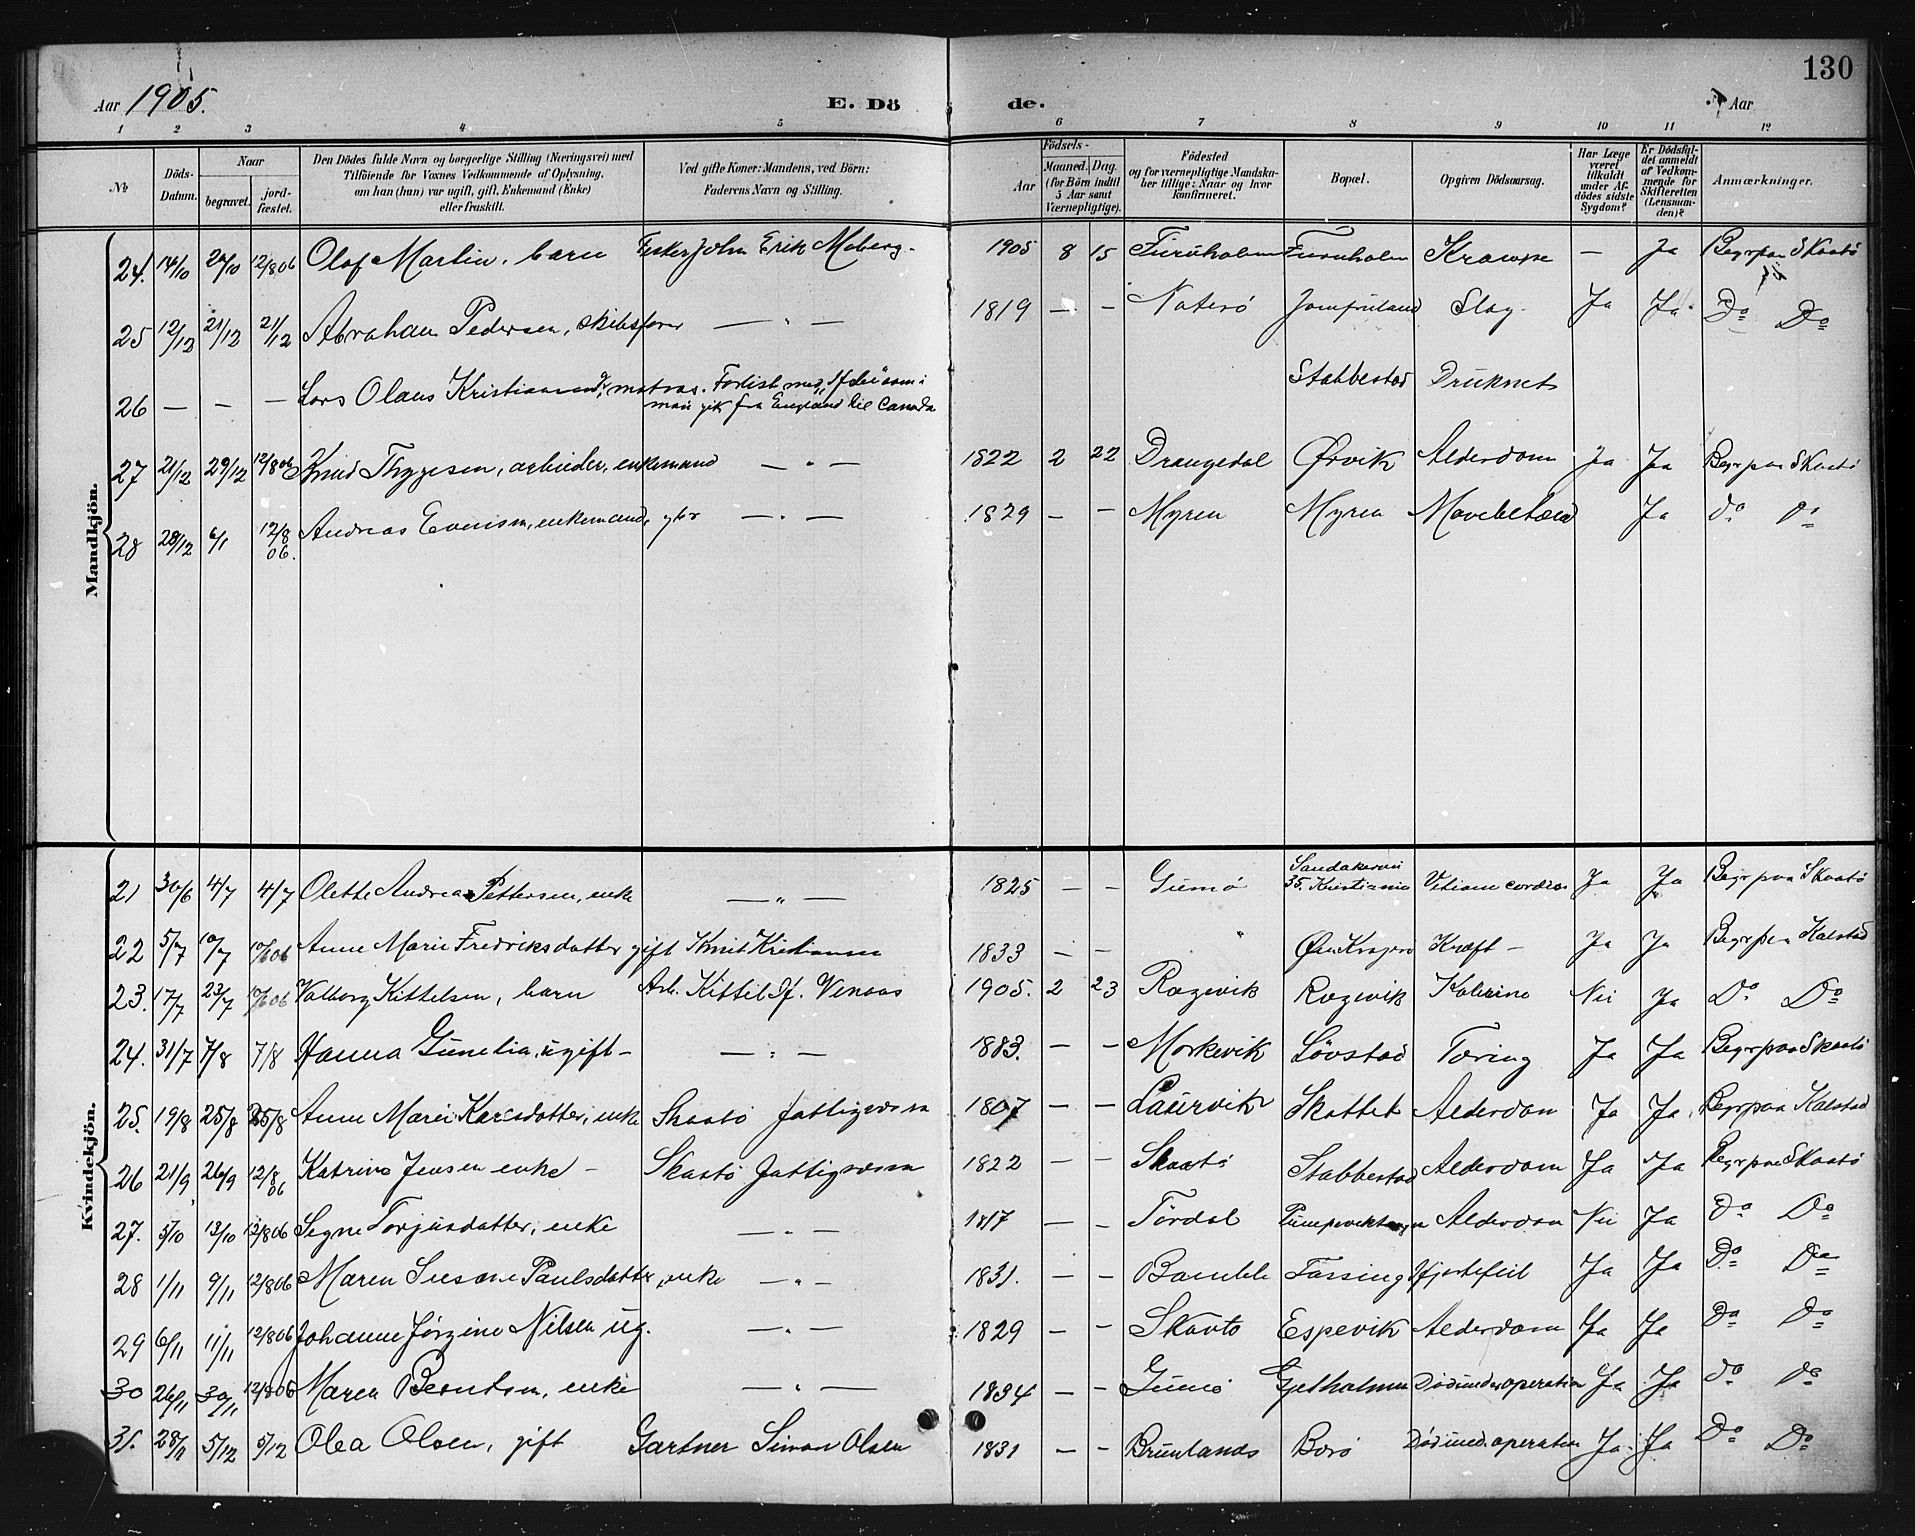 130
Aar 1905. E. Döde. Aar
1 2 3 4 5 6 7 8 9 10 11 12
No
Döds-Datum.
Naar begravet. jord-fæstet.
Den Dödes fulde Navn og borgerlige Stilling (Næringsvei) med Tilföiende for Voxnes Vedkommende af Oplysning, om han (hun) var ugift, gift, Enkemand (Enke) eller fraskilt.
Ved gifte Koner: Mandens, ved Börn: Faderens Navn og Stilling.
Födsels- Aar Maaned. Dag. (for Börn indtil 5 Aar samt Værnepligtige).
Födested og for værnepligtige Mandskaber tillige: Naar og hvor konfirmeret.
Bopæl.
Opgiven Dödsaarsag.
Har Læge været tilkaldt under Afdödes sidste Sygdom?
Er Dödsfaldet anmeldt af Vedkommende for Skifteretten (Lensmanden)?
Anmærkninger.
Mandkjön.
24. 14/10 24/10 12/8 06 Olaf Martin, barn Fisker John Erik Moberg. 1905 8 15 Furuholmen Furuholmen Krampe — Ja Begr paa Skaatö
25 12/12 21/12 21/12 Abraham Pedersen, skibsfører — " — 1819 — — Naterö Jomfruland Slag. Ja Ja. Do Do
26 — — — Lars Olaus Kristiansen, matros. Forlist med som man gik fra England til Canada Stabbestad Druknet
27 21/12 29/12 12/8 06 Knud Thygesen, arbeider, enkemand — " — 1822 2 22 Drangedal Ørvik Alderdom Ja Ja Begr paa Skaatö
28 28/12 6/1 12/8 06. Andreas Evensen, enkemand, — " — 1829 — — Myren Myren Ja do Do
Kvindekjön.
21 30/6 4/7 4/7 Olette Andrea Pettersen, enke — " — 1825 — — Gumö 35, Kristiania Vitium cordis Ja Ja Begr paa Skaatö
22 5/7 10/7 Anne Marie Fredriksdatter gift Knut Kristiansen 1833 — — " Kragerö Kræft — Ja Ja Begr paa Kalstad
23. 17/7 23/7 Valborg Kittelsen, barn Arb. Kittil Venaas 1905. 2 23 Røgevik Røgevik Nei Ja Do Do
24. 31/7 7/8 7/8 Hanna Gunelia, ugift — — " — 1883. — — Morkevik Løvstad Tæring Ja Ja Begr paa Skaatö
25. 19/8 25/8 25/8 Anne Marie Karsdatter, enke Skaatö 1807 — — Laurvik Skottet Alderdom Ja Ja. Begr paa Kalstad
26 21/9 26/9 12/8 06 Katrine Jensen enke — Skaatö 1822 — — Skaatö Stabbestad Alderdom Ja Ja Begr paa Skaatö
27. 5/10 13/10 12/8 06 Signe Torjusdatter, enke — " — 1817 — — Tördal Alderdom Nei Ja Do Do
28 1/11 9/11 12/8 06 Maren Susane Paulsdatter, enke — " — 1831. — — Bamble Fossing Hjertefeil Ja Ja Do Do
29 6/11 11/11 12/8 06 Johanne Jørgine Nilsen ug. — " — 1829 — — Skaatö Espevik Alderdom Ja Ja Do Do
30 26/11 30/11 12/8 06 Maren Berntsen, enke — " — 1834 — — Gumö Gjetholmen Død under operation Ja Ja do Do
31. 28/11 5/12 5/12 Olea Olsen, gift Gartner Simon Olsen 1831 — — Brunlanæs Borö Død und. operation Ja. Ja Do Do